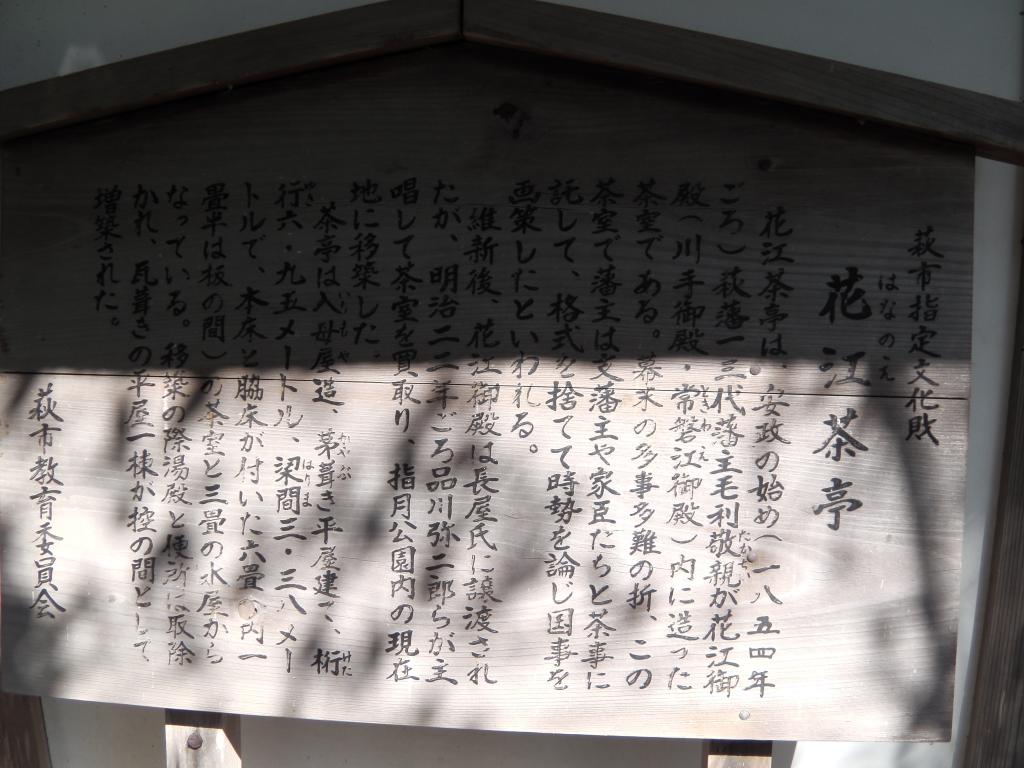 萩市指定文化財
はなのえ
花江茶亭
花江茶亭は、安政の始め（一八五四年
ごろ）萩藩一三代藩主毛利敬親が花江御
殿（川手御殿・常磐江御殿）内に造った
茶室である。幕末の多事多難の折、この
茶室で藩主は支藩主や家臣たちと茶事に
託して、格式を捨てて時勢を論じ国事を
画策したといわれる。
維新後、花江御殿は長屋氏に譲渡され
たが、明治二二年ごろ品川弥二郎らが主
唱して茶室を買取り、指月公園内の現在
地に移築した。
茶亭は入母屋造、茅葺き平屋建て、桁
行六・九五メートル、梁間三・三八メー
トルで、本床と脇床が付いた六畳（内一
畳半は板の間）の茶室と三畳の水屋から
なっている。移築の際湯殿と便所は取除
かれ、瓦葺きの平屋一棟が控の間として
増築された。
萩市教育委員会